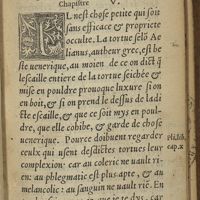 Chapistre V.
IL nest chose petite qui soit
sans efficace & propriete
occulte. La tortue selō Ae
lianus, autheur grec, est be
ste venerique, au moien de ce on dict q̄
lescaille entiere de la tortue seichée &
mise en pouldre prouoque luxure si on
en boit, & si on prend le dessus de ladi
cte escaille, & que ce soit mys en poul-
dre, que elle cohibe, & garde de chose
venerique. Pource doibuent regarder
ceulx qui vsent desdictes tortues leur
complexion: car au coleric ne vault ri-
en: au phlegmatic est plus apte, & au
melancolic: au sanguin ne vault riē. En
que ie te dys, car
cap.